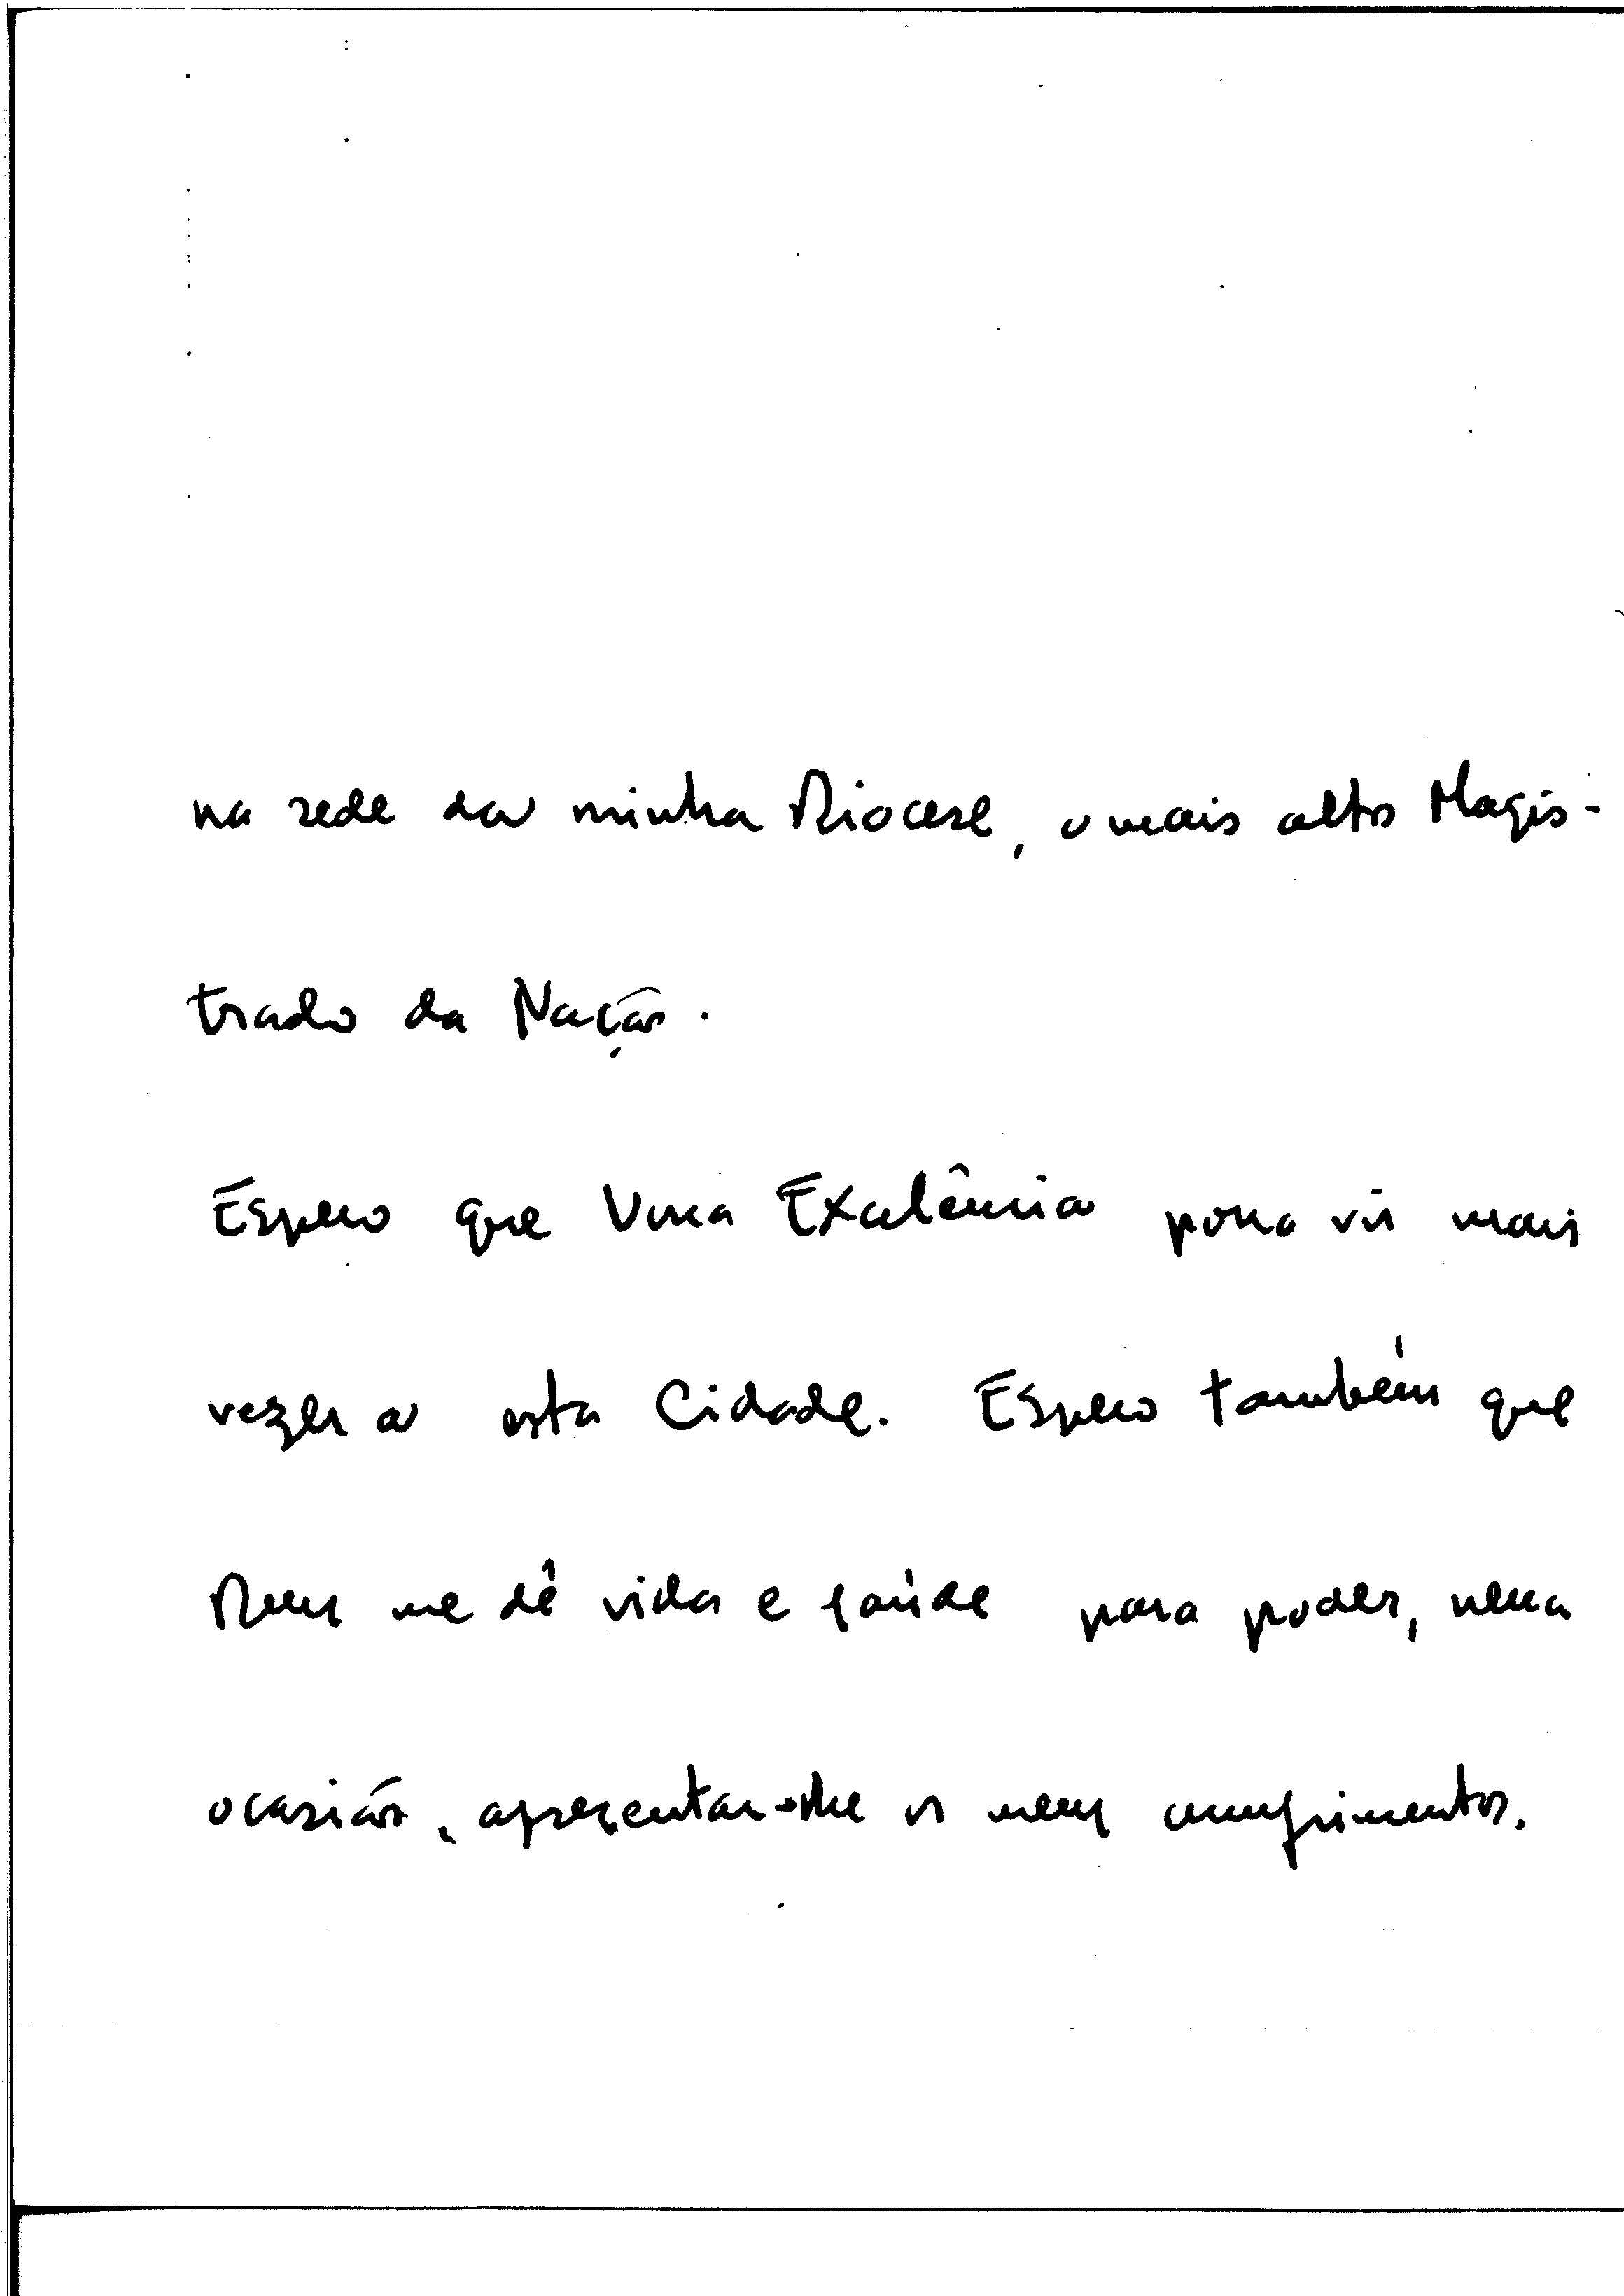 na sede da minha Diocese, o mais alto Magis-
trado da Nação.
Espero que Vossa Excelência possa vir mais
vezes a esta Cidade. Espero também que
Deus me dê vida e saúde para poder, nessa
ocasião, apresentar-lhe os meus cumprimentos.